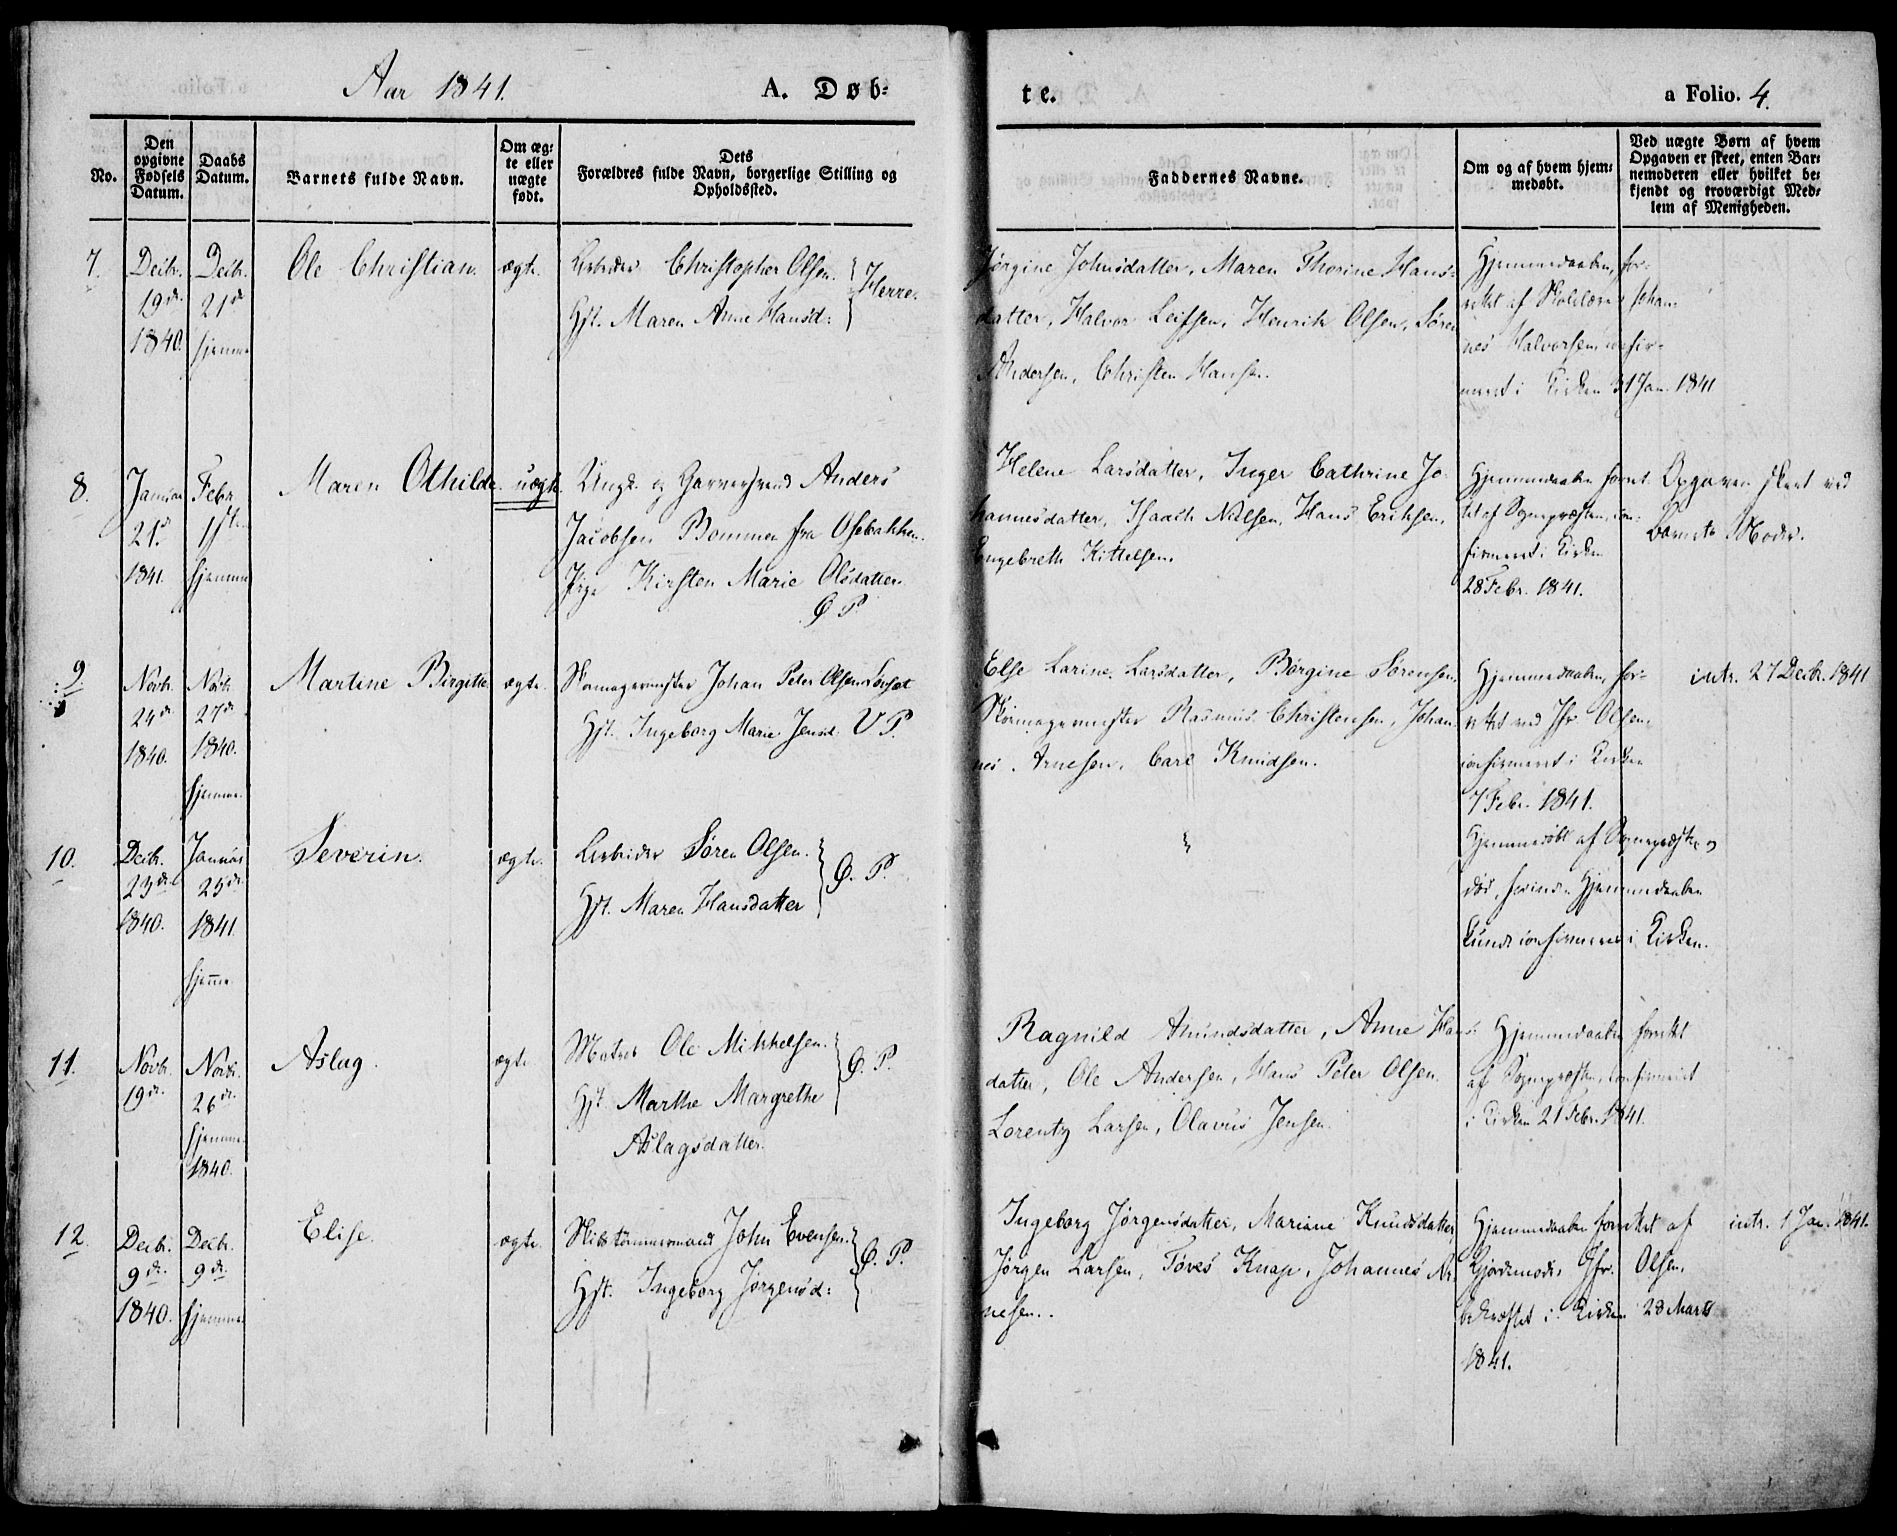 Aar 1841. A. Døb-
te. a Folio. 4.
No.
Den opgivne Fødsels Datum.
Daabs Datum.
Barnets fulde Navn.
Om æg-
te eller
uægte
født.
Dets
Forældres fulde Navn, borgerlige Stilling og
Opholdssted.
Faddernes Navne.
Om og af hvem hjem-
medøbt.
Ved uægte Børn af hvem
Opgaven er skeet, enten Bar-
nemoderen eller hvilket be-
kjendt og troværdigt Med-
lem af Menigheden.
7.
Decbr.
19de
1840.
Decbr.
21de
hjemme
Ole Christian.
ægte.
Arbeider Christopher Olsen. Herre.
Hst. Maren Anne Hansd:
Jørgine Johnsdatter, Maren Thorine Hans-
datter, Halvor Leifsen, Henrik Olsen, Søren
Andersen, Christen Hansen.
Hjemmedaaben, for-
rettet af Skolelærer Johan-
nes Halvorsen, confir-
meret i Kirken 31 Jan. 1841
8.
Januar
21.
1841.
Febr.
1ste
hjemme
Maren Othilde.
uægte.
Ungk. og Garversvend Anders
Jacobsen Bommen fra Osebakken.
Pige Kirsten Marie Olsdatter.
Ø P.
Helene Larsdatter, Inger Cathrine Jo-
hannesdatter, Isaach Nilsen, Hans Eriksen,
Engebreth Kittelsen.
Hjemmedaaben forret-
tet af Sognepræsten, con-
firmeret i Kirken
28 Febr. 1841.
Opgaven skeet ved
Barnets Moder.
9.
Novbr.
24de
1840.
Novbr.
27de
1840.
hjemme.
Martine Birgitte
ægte.
Skomagermester Johan Peter Olsen
Hst. Ingeborg Marie Jensd. V P.
Else Larine Larsdatter, Børgine Sørensen,
Skomagermester Rasmus Christensen, Johan-
nes Arnesen, Carl Knudsen.
Hjemmedaaben, for-
rettet ved Jfr. Olsen,
confirmeret i Kirken
7 Febr. 1841.
intr. 27 Decbr. 1841
10.
Decbr.
23de
1840.
Januar
25de
1841
hjemme
Severin.
ægte.
Arbeider Søren Olsen. Ø. P.
Hst. Maren Hansdatter
Hjemmedøbt af Sognepræsten og
død, forinden Hjemmedaaben
kunde confirmeres i Kirken.
11.
Novbr.
19de
Novbr.
26de
hjemme.
1840.
Aslag.
ægte.
Matros Ole Mikkelsen. Ø. P.
Hst. Marthe Margrethe
Aslagsdatter.
Ragnild Amundsdatter, Anne Hans-
datter, Ole Andersen, Hans Peter Olsen.
Lorentz Larsen, Olavus Jensen.
Hjemmedaaben forrettet
af Sognepræsten, confirmeret
i Kirken 21 Febr. 1841.
12.
Decbr.
9de
1840.
Decbr.
9de
hjemme.
Elise.
ægte.
Skibstømmermand John Evensen. Ø. P.
Hst. Ingeborg Jørgensd:
Ingeborg Jørgensdatter, Mariane Knudsdatter,
Jørgen Larsen, Tøves Knap, Johannes Ar-
nesen.
Hjemmedaaben forrettet af
Gjordemoder Jfr. Olsen,
bekræftet i Kirken 28 Marts
1841.
intr. 1 Jan. 1841.